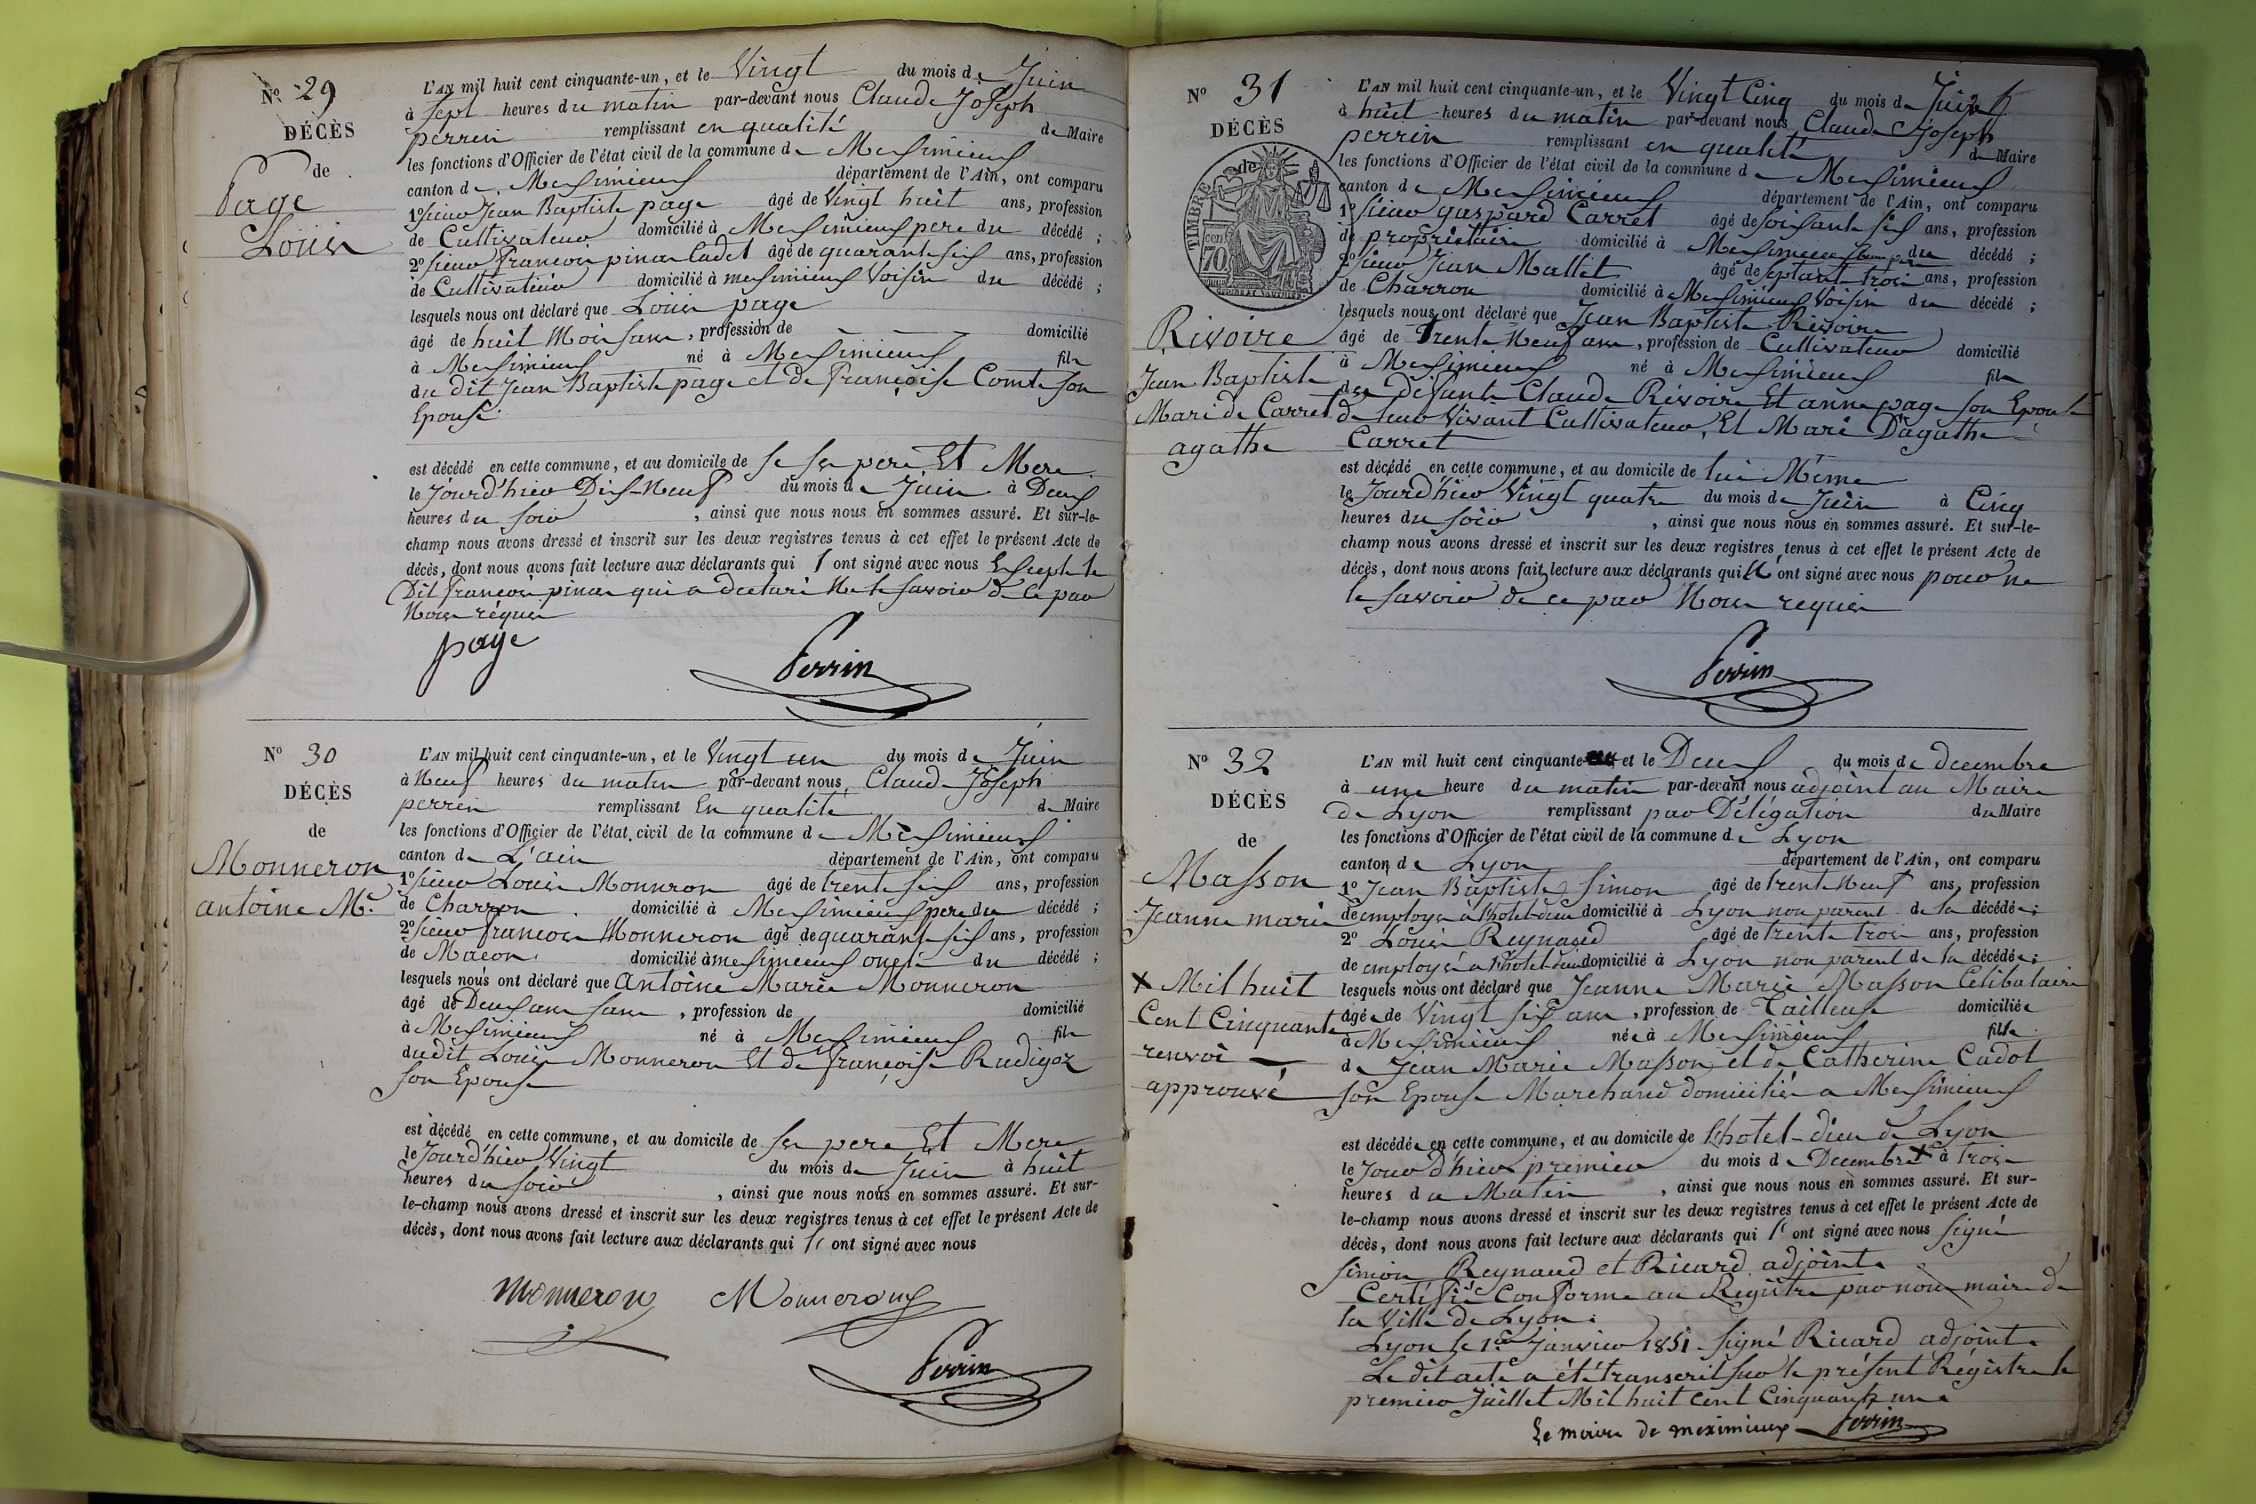 Nº 29
DÉCÈS
de
Page
Louis
L'AN mil huit cent cinquante-un, et le Vingt du mois de Juin
à Sept heures du matin par-devant nous Claude Joseph
perrin remplissant en qualité de Maire
les fonctions d'Officier de l'état civil de la commune de Meximieux
canton de Meximieux département de l'Ain, ont comparu
1º Sieur Jean Baptiste page âgé de Vingt huit ans, profession
de Cultivateur domicilié à Meximieux pere du décédé ;
2º Sieur françois pinar Cadet âgé de quarante six ans, profession
de Cultivateur domicilié à meximieux Voisin du décédé ;
lesquels nous ont déclaré que Louis page
âgé de huit Mois sans, profession de domicilié
à Meximieux né à Meximieux fils
du dit Jean Baptiste page et de françoise Comte son
Epouse
est décédé en cette commune, et au domicile de se ses pere Et Mere
le Jourd'hier Dix-Neuf du mois de Juin à Deux
heures du soir, ainsi que nous nous en sommes assuré. Et sur-le-
champ nous avons dressé et inscrit sur les deux registres tenus à cet effet le présent Acte de
décès, dont nous avons fait lecture aux déclarants qui ont signé avec nous Excepté le
Dit françois pinar qui a déclaré Ne le savoir de ce par
Nous réquis
page
Perrin
Nº 30
DÉCÈS
de
Monneron
antoine Mie
L'AN mil huit cent cinquante-un, et le Vingt un du mois de Juin
à Neuf heures du matin par-devant nous Claude Joseph
perrin remplissant En qualité de Maire
les fonctions d'Officier de l'état civil de la commune de Meximieux
canton de L'ain département de l'Ain, ont comparu
1º Sieur Louis Monneron âgé de trente six ans, profession
de Charron domicilié à Meximieux pere du décédé ;
2º Sieur françois Monneron âgé de quarante six ans, profession
de Macon domicilié à meximieux oncle du décédé ;
lesquels nous ont déclaré que Antoine Marie Monneron
âgé de Deux ans sans, profession de domicilié
à Meximieux né à Meximieux fils
du dit Louis Monneron Et de françoise Rudigoz
son Epouse
est décédé en cette commune, et au domicile de ses pere Et Mere
le Jourd'hier Vingt du mois de Juin à huit
heures du soir, ainsi que nous nous en sommes assuré. Et sur-
le-champ nous avons dressé et inscrit sur les deux registres tenus à cet effet le présent Acte de
décès, dont nous avons fait lecture aux déclarants qui ont signé avec nous
Monneron Monneron
Perrin
Nº 31
DÉCÈS
de
TIMBRE
70
Rivoire
Jean Baptiste
Mari de Carret
agathe
L'AN mil huit cent cinquante-un, et le Vingt Cinq du mois de Juin
à huit heures du matin par-devant nous Claude Joseph
perrin remplissant en qualité de Maire
les fonctions d'Officier de l'état civil de la commune de Meximieux
canton de Meximieux département de l'Ain, ont comparu
1º Sieur gaspard Carret âgé de soixante six ans, profession
de propriétaire domicilié à Meximieux beaupere du décédé ;
2º Sieur Jean Mallet âgé de septante trois ans, profession
de Charron domicilié à Meximieux Voisin du décédé ;
lesquels nous ont déclaré que Jean Baptiste Rivoire
âgé de Trente Neuf ans, profession de Cultivateur domicilié
à Meximieux né à Meximieux fils
des défunts Claude Rivoire Et anne page son Epouse
de leur Vivant Cultivateur, Et Mari D'agathe
Carret
est décédé en cette commune, et au domicile de lui Même
le Jourd'hier Vingt quatre du mois de Juin à Cinq
heures du soir, ainsi que nous nous en sommes assuré. Et sur-le-
champ nous avons dressé et inscrit sur les deux registres tenus à cet effet le présent Acte de
décès, dont nous avons fait lecture aux déclarants qui N'ont signé avec nous pour ne
le savoir de ce par Nous requis
Perrin
Nº 32
DÉCÈS
de
Masson
Jeanne marie
X Mil huit
Cent Cinquante
renvoi
approuvé
L'AN mil huit cent cinquante et le Deux du mois de decembre
à une heure du matin par-devant nous adjoint au Maire
de Lyon remplissant par Délégation du Maire
les fonctions d'Officier de l'état civil de la commune de Lyon
canton de Lyon département de l'Ain, ont comparu
1º Jean Baptiste Simon âgé de trente Neuf ans, profession
de employé à l'hotel-dieu domicilié à Lyon non parent de la décédée ;
2º Louis Reynaud âgé de trente trois ans, profession
de employé a l'hotel-dieu domicilié à Lyon non parent de la décédée ;
lesquels nous ont déclaré que Jeanne Marie Masson Celibataire
âgée de Vingt six ans, profession de Tailleuse domiciliée
à Meximieux née à Meximieux fille
de Jean Marie Masson et de Catherine Cadot
son Epouse Marchand domiciliés a Meximieux
est décédée en cette commune, et au domicile de l'hotel-dieu de Lyon
le Jour d'hier premier du mois de Decembre X à trois
heures du Matin, ainsi que nous nous en sommes assuré. Et sur-
le-champ nous avons dressé et inscrit sur les deux registres tenus à cet effet le présent Acte de
décès, dont nous avons fait lecture aux déclarants qui ont signé avec nous signé
Simon Reynaud et Ricard adjoint
Certifié Conforme au Registre par nous maire de
la Ville de Lyon.
Lyon le 1er Janvier 1851 signé Ricard adjoint
Le dit acte a été transcrit sur le présent Régistre le
premier Juillet Mil huit cent Cinquante un
Le maire de meximieux Perrin